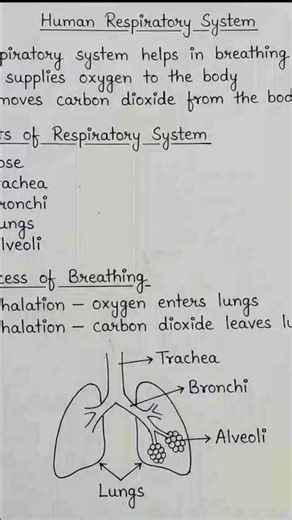 Human Respiratory System
piratory system helps in breathing
supplies oxygen to the body
moves carbon dioxide from the bod
ts of Respiratory System
ose
rachea
ronchi
ungs
lveoli
cess of Breathing
halation – oxygen enters lungs
halation – carbon dioxide leaves lu
Trachea
Bronchi
Alveoli
Lungs